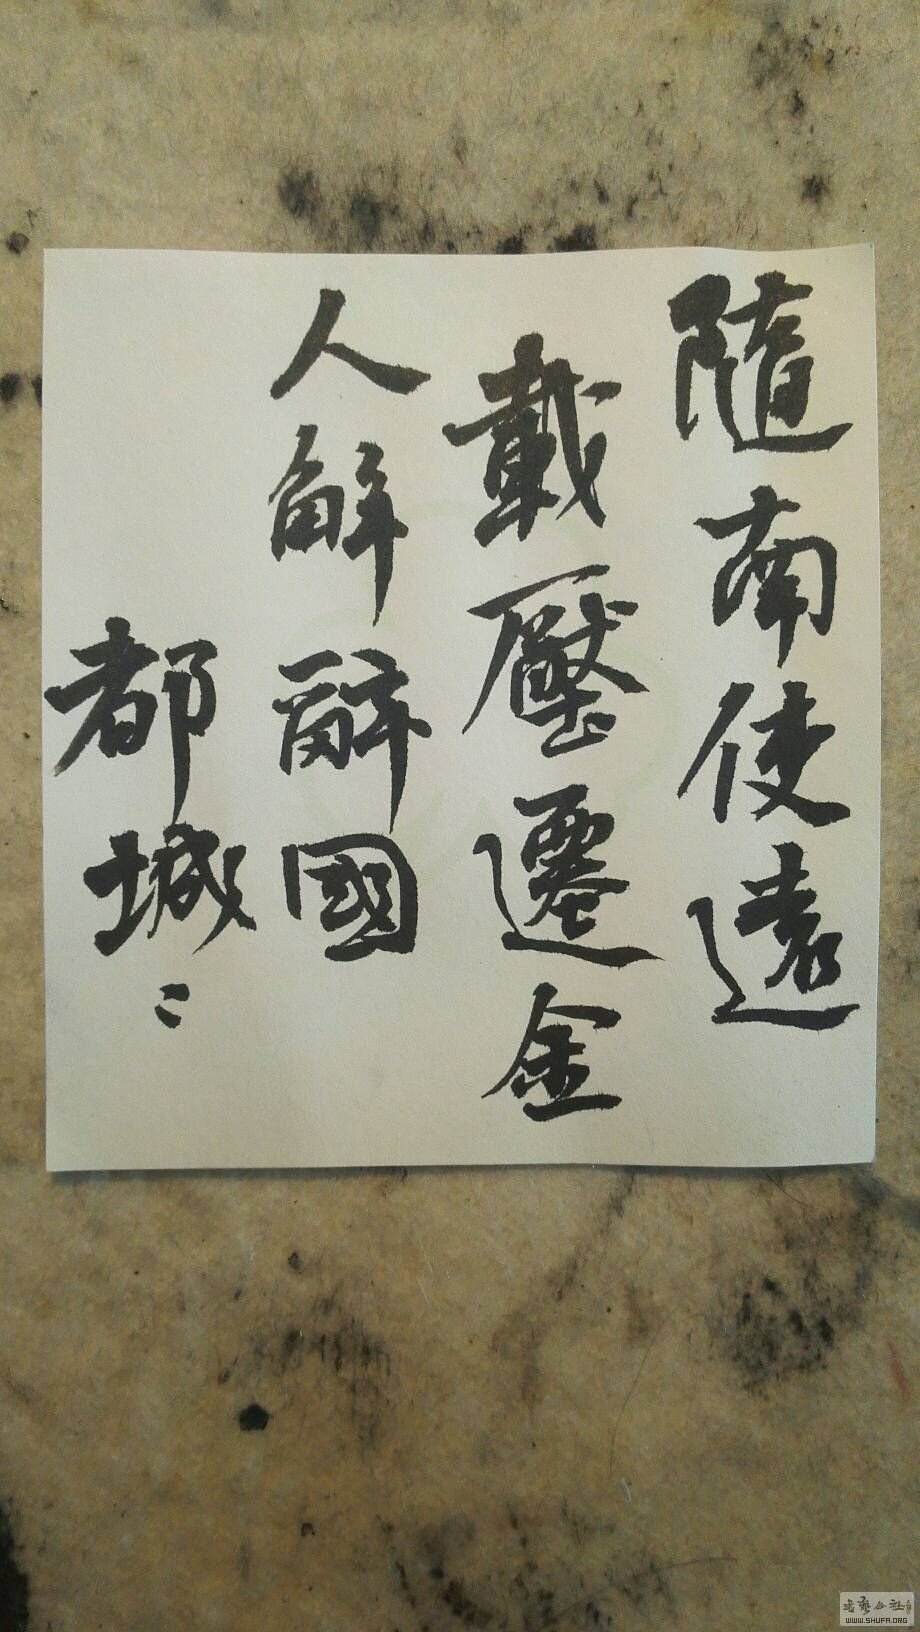 隨南使遠
載壓遷金
人解辭國
都城〻
書藝公社
WWW.SHUFA.ORG